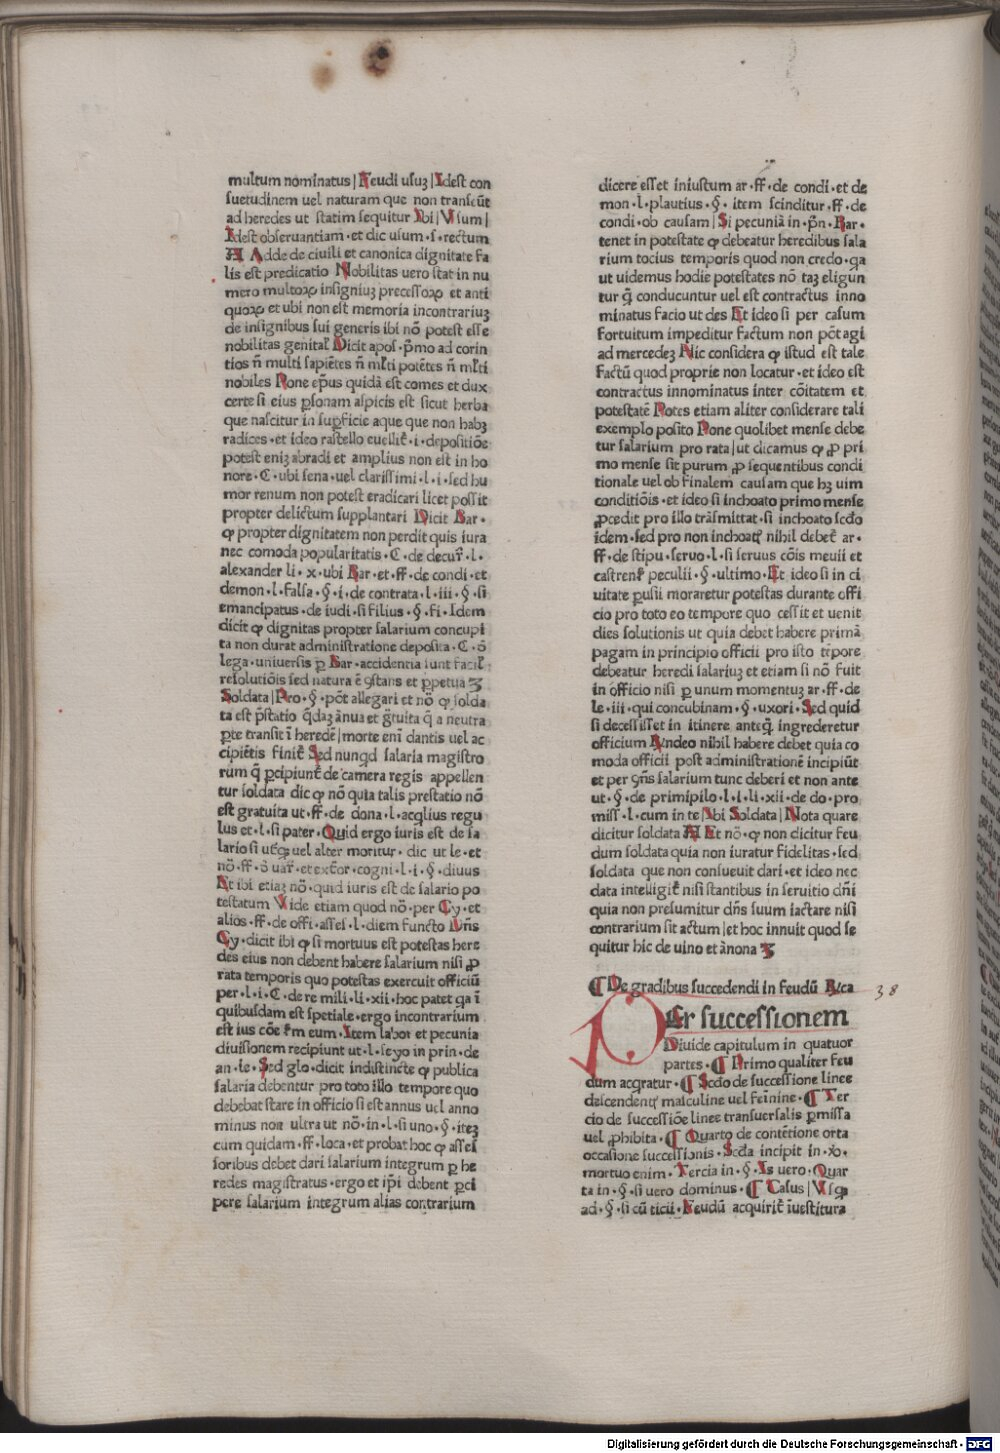 multum nominatus | Feudi usuʒ | Idest con
suetudinem uel naturam que non transeūt
ad heredes ut statim sequitur Ibi | Usum |
Idest obseruantiam · et dic usum · s · rectum
Adde de ciuili et canonica dignitate fa
lis est predicatio Nobilitas uero stat in nu
mero multoꝝ insigniuʒ precessoꝝ et anti
quoꝝ et ubi non est memoria incontrariuʒ
de insignibus sui generis ibi nō potest esse
nobilitas genital̄ Dicit apos · p̄mo ad corin
tios n̄ multi sapiētes n̄ ml̄ti potētes n̄ ml̄ti
nobiles Pone ep̄us quidā est comes et dux
certe si eius ꝑsonam aspicis est sicut herba
que nascitur in suꝑficie aque que non habʒ
radices · et ideo rastello euellit̄ · i · depositiōe
potest eniʒ abradi et amplius non est in ho
nore · C · ubi sena · uel clarissimi · l · i · sed hu
mor renum non potest eradicari licet possit
propter delictum supplantari Dicit Bar ·
ꝙ propter dignitatem non perdit quis iura
nec comoda popularitatis · C · de decur̄ · l ·
alexander li · x · ubi Bar · et · ff · de condi · et
demon · l · falsa · § · i · de contrata · l · iii · § · si
emancipatus · de iudi · si filius · § · fi · Idem
dicit ꝙ dignitas propter salarium concupi
ta non durat administratione deposita · C · ō
lega · uniuersis ꝑ Bar · accidentia sunt facil̄
resolutiōis sed natura ē ꝯstans et ꝑpetua
Soldata | Pro · § · pōt allegari et nō ꝙ solda
ta est p̄statio q̄daʒ ānua et g̅tuita q̄ a neutra
ꝑte transit ī heredē | morte enī dantis uel ac
cipiētis finit̄ Sed nunqd salaria magistro
rum q̄ ꝑcipiunt̄ de camera regis appellen
tur soldata dic ꝙ nō quia talis prestatio nō
est gratuita ut · ff · de dona · l · acqlius regu
lus et · l · si pater · Quid ergo iuris est de sa
lario si utqꝫ uel alter moritur · dic ut le · et
nō · ff · ō uar̄ · et exēor · cogni · l · i · § · diuus
Et ibi etiaʒ nō · quid iuris est de salario po
testatum Vide etiam quod nō · per Cy · et
alios · ff · de offi · asses · l · diem functo Dn̄s
Cy · dicit ibi ꝙ si mortuus est potestas here
des eius non debent habere salarium nisi ꝓ
rata temporis quo potestas exercuit officiū
per · l · i · C · de re mili · li · xii · hoc patet qa ī
quibusdam est spetiale · ergo incontrarium
est ius cōe s̄m eum · Item labor et pecunia
diuisionem recipiunt ut · l · seyo in prin · de
an · le · Sed glo · dicit indistincte ꝙ publica
salaria debentur pro toto illo tempore quo
debebat stare in officio si est annus uel anno
minus non ultra ut nō · in · l · si uno · § · iteʒ
cum quidam · ff · loca · et probat hoc ꝙ asses
soribus debet dari salarium integrum ꝑ he
redes magistratus · ergo et ip̄i debent ꝑci
pere salarium integrum alias contrarium
dicere esset iniustum ar · ff · de condi · et de
mon · l · plautius · § · item scinditur · ff · de
condi · ob causam | Si pecuniā in · pn̄ · Bar ·
tenet in potestate ꝙ debeatur heredibus sala
rium tocius temporis quod non credo · qa
ut uidemus hodie potestates nō taʒ eligūn
tur q̄ conducuntur uel est contractus inno
minatus facio ut des Et ideo si per casum
fortuitum impeditur factum non pōt agi
ad mercedeʒ Nic considera ꝙ istud est tale
factū quod proprie non locatur · et ideo est
contractus innominatus inter cōitatem et
potestatē Potes etiam aliter considerare tali
exemplo posito Pone quolibet mense debe
tur salarium pro rata | ut dicamus ꝙ ꝓ pri
mo mense sit purum ꝓ sequentibus condi
tionale uel ob finalem causam que hʒ uim
conditiōis · et ideo si inchoato primo mense
ꝓcedit pro illo trāsmittat · si inchoato scd̄o
idem · sed pro non inchoatꝭ nihil debet̄ ar ·
ff · de stipu · seruo · l · si seruus cōis meuii et
castrens̄ peculii · § · ultimo · Et ideo si in ci
uitate ꝑusii moraretur potestas durante offi
cio pro toto eo tempore quo cessit et uenit
dies solutionis ut quia debet habere primā
pagam in principio officii pro isto tēpore
debeatur heredi salariuʒ et etiam si nō fuit
in officio nisi ꝑ unum momentuʒ ar · ff · de
le · iii · qui concubinam · § · uxori · Sed quid
si decessisset in itinere anteq̄ ingrederetur
officium Rn̄deo nihil habere debet quia co
moda officii post administrationē incipiūt
et per ꝯn̄s salarium tunc deberi et non ante
ut · § · de primipilo · l · i · li · xii · de do · pro
miss · l · cum in te | Ubi Soldata | Nota quare
dicitur soldata Et nō · ꝙ non dicitur feu
dum soldata quia non iuratur fidelitas · sed
soldata que non consueuit dari · et ideo nec
data intelligit̄ nisi stantibus in seruitio dn̄i
quia non presumitur dn̄s suum iactare nisi
contrarium sit actum | et hoc innuit quod se
quitur hic de uino et ānona
¶ De gradibus succedendi in feudū Rica 38
PEr successionem
Diuide capitulum in quatuor
partes · ¶ Primo qualiter feu
dum acqratur · ¶ Scd̄o de successione linee
descendentꝭ masculine uel feīnine · ¶ Ter
cio de successiōe linee transuersalis ꝑmissa
uel ꝓhibita · ¶ Quarto de contētione orta
occasione successionis · Scd̄a incipit in · xo ·
mortuo enim · Tercia in · § · Is uero · Quar
ta in · § · si uero dominus · ¶ Casus | Vsqꝫ
ad · § · si cū ticii · Feudū acquirit̄ īuestitura